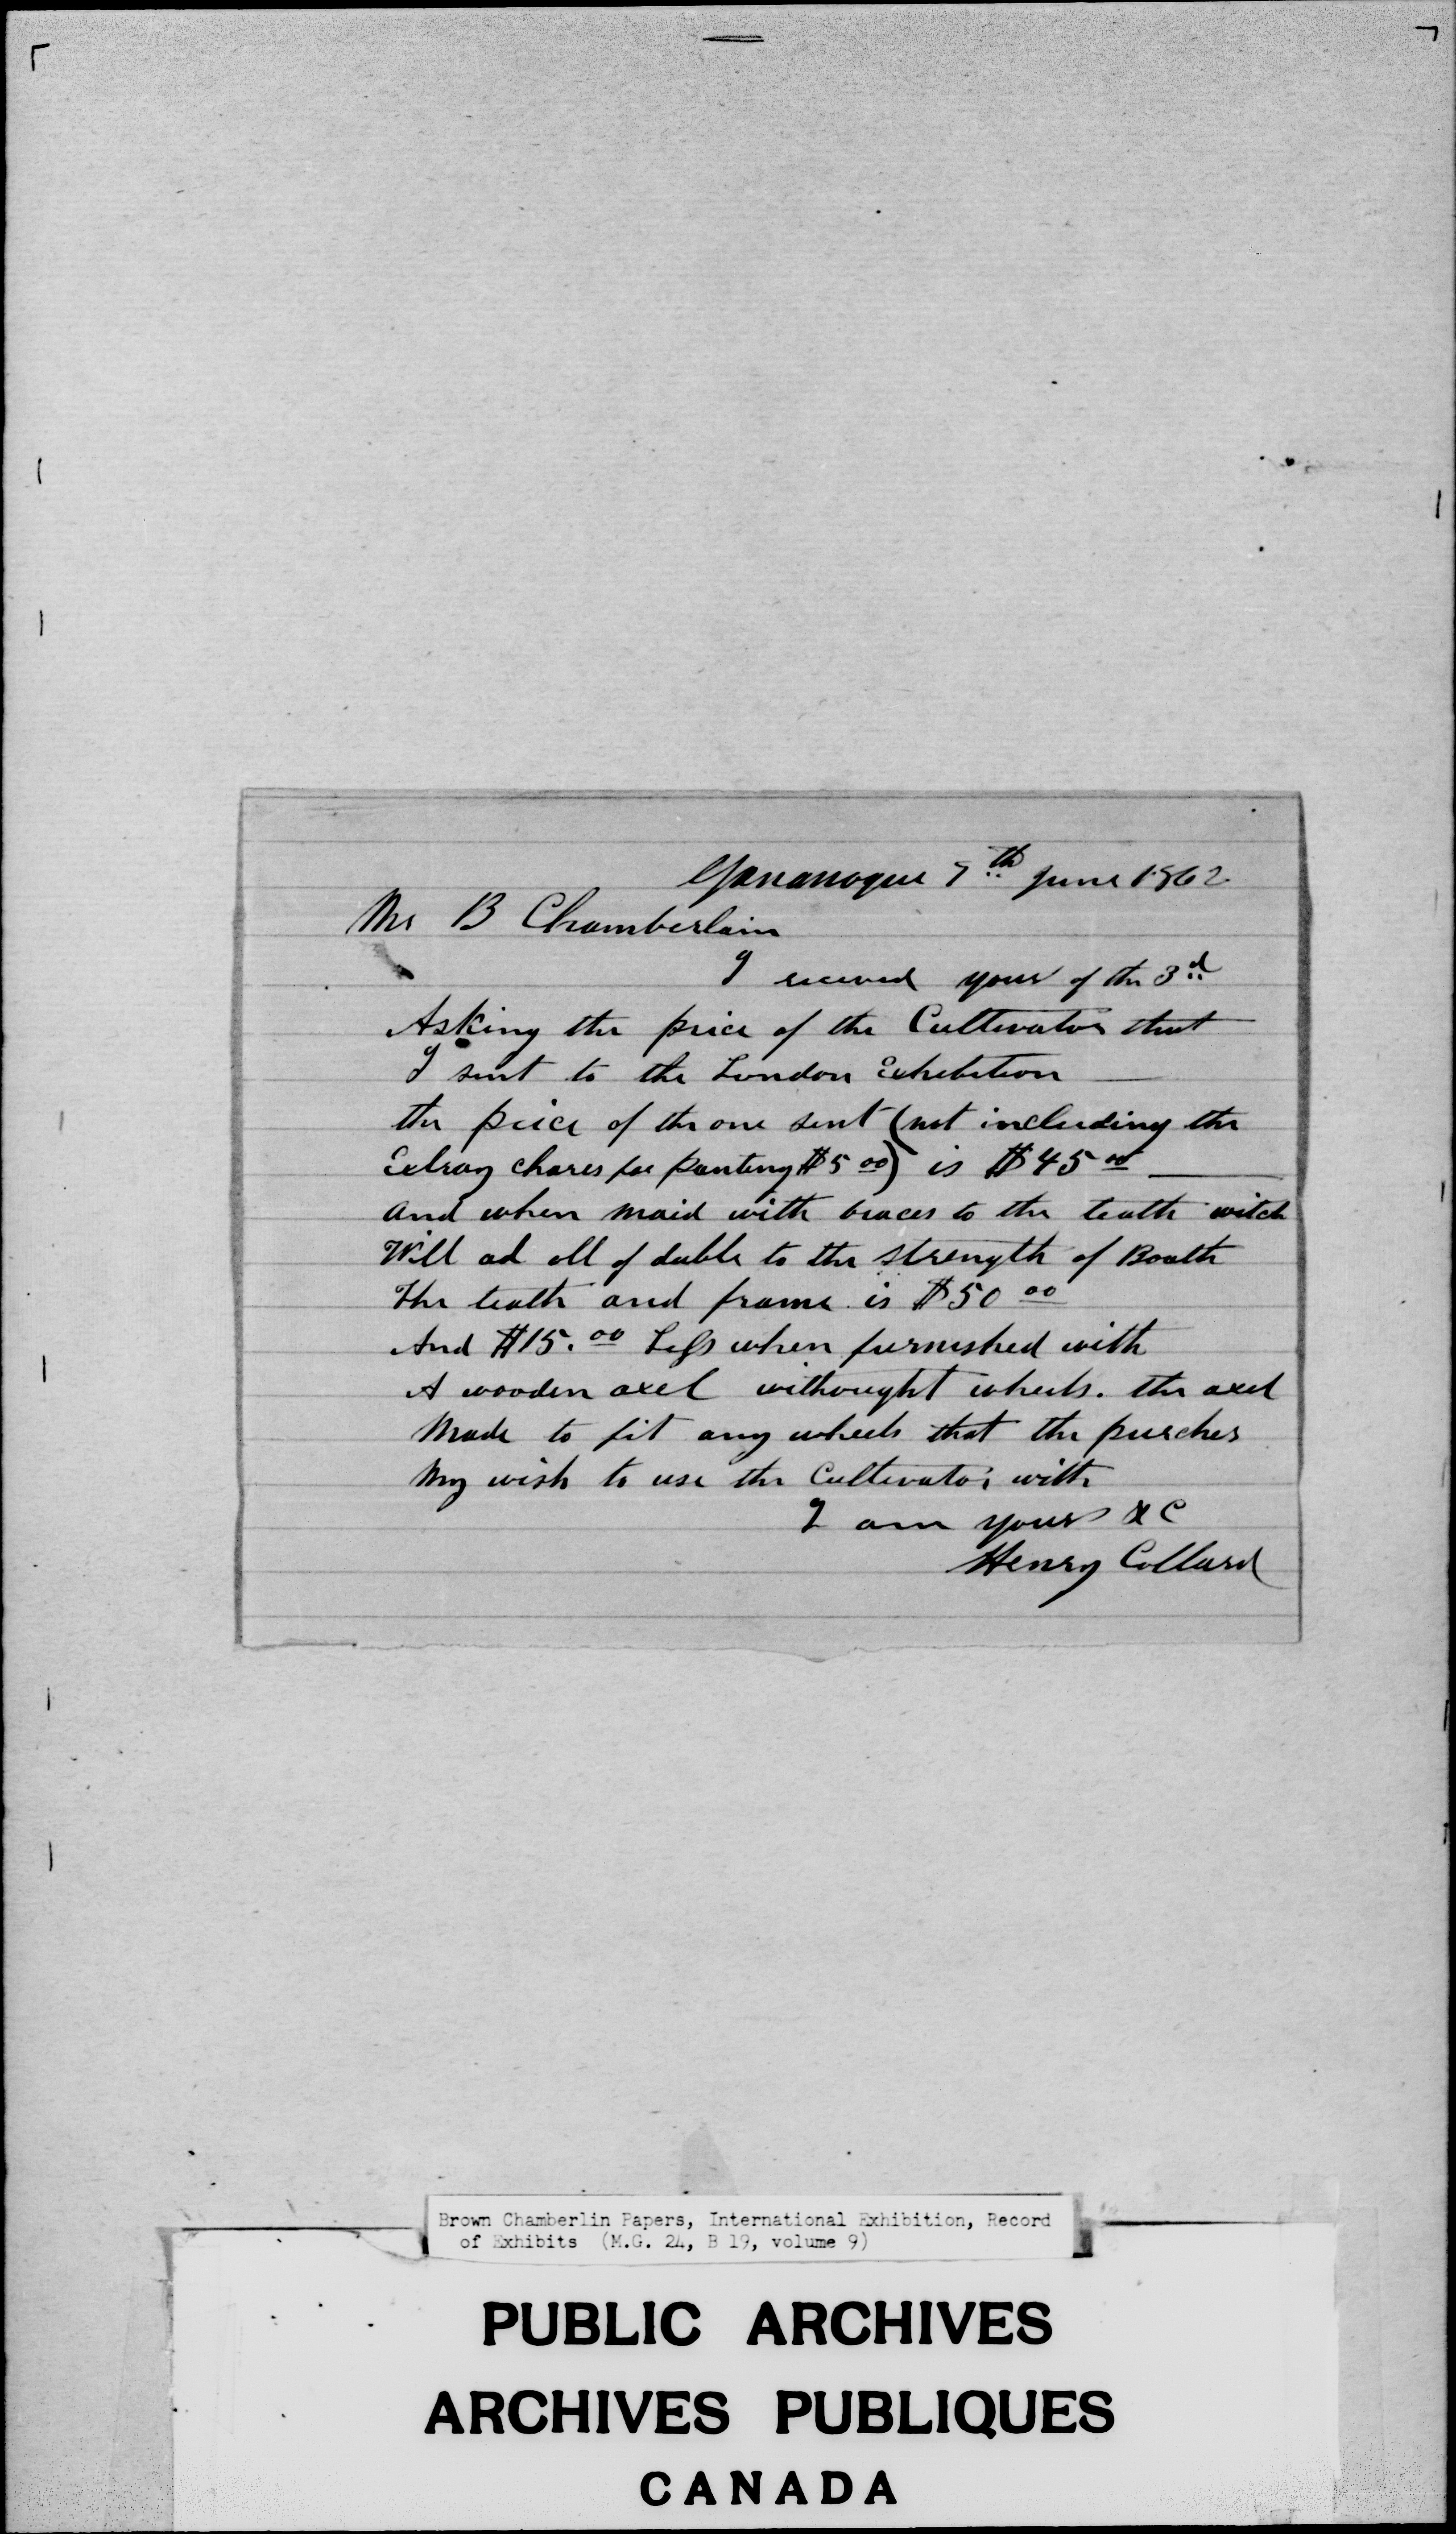 Gananoque 7th June 1862
Mr B Chamberlain
I received your of the 3d
Asking the price of the Cultivator that
I sent to the London Exhibition
the price of the one sent (not including the
Extray chares for panting $5 00) is $45 00
and when maid with braces to the teath witch
Will ad all of dubble to the strength of Boath
The teath and frame is $50 00
And $15.00 Less when furnished with
A wooden axel withought wheels. the axel
Made to fit any wheels that the purcher
My wish to use the Cultivator with
I am yours &C
Henry Collard
Brown Chamberlin Papers, International Exhibition, Record
of Exhibits (M.G. 24, B 19, volume 9)
PUBLIC ARCHIVES
ARCHIVES PUBLIQUES
CANADA